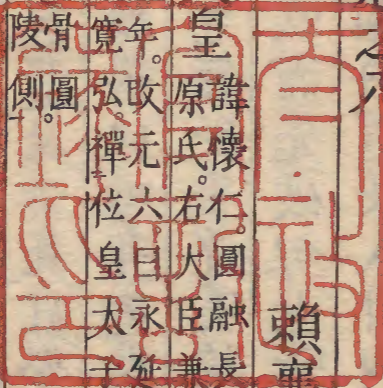 之
賴襄
皇
諱懷仁。圓融長
原氏。右大臣兼
年。改元六。曰永延
寛弘。禪位皇太子
骨圓
陵側。